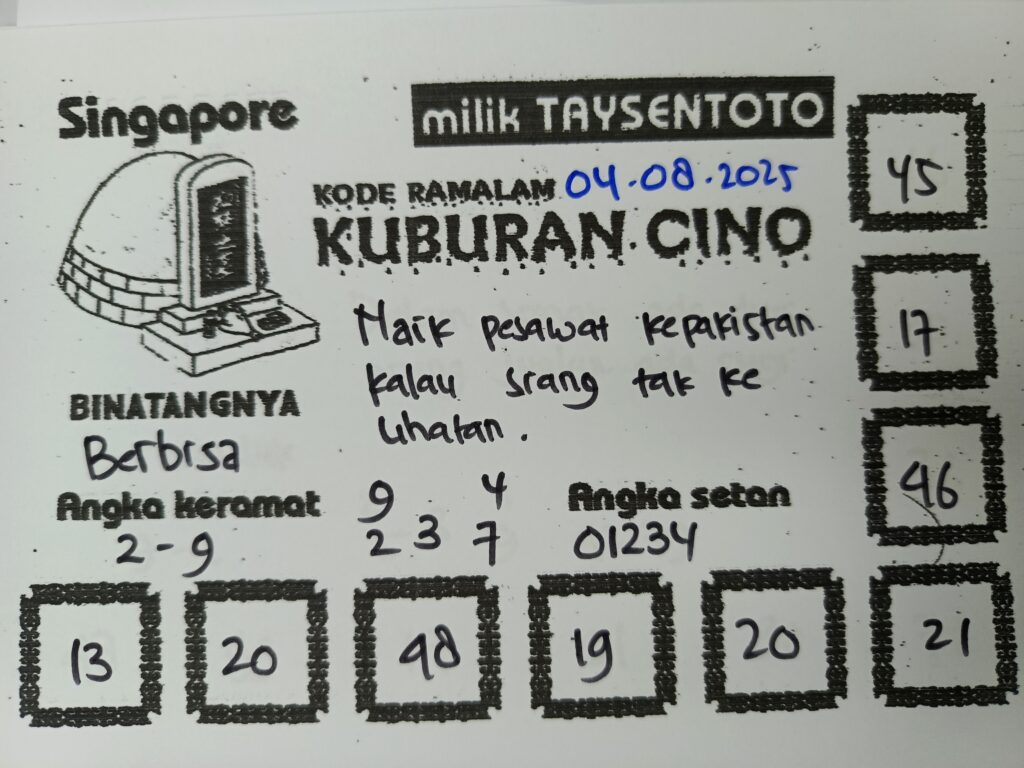 Singapore
milik TAYSENTOTO
KODE RAMALAM 04.08.2025
KUBURAN CINO
Naik pesawat kepakistan
kalau srang tak ke
lihatan.
BINATANGNYA
Berbisa
Angka keramat
2 - 9
9 4
2 3 7
Angka setan
01234
45
17
46
13 20 48 19 20 21